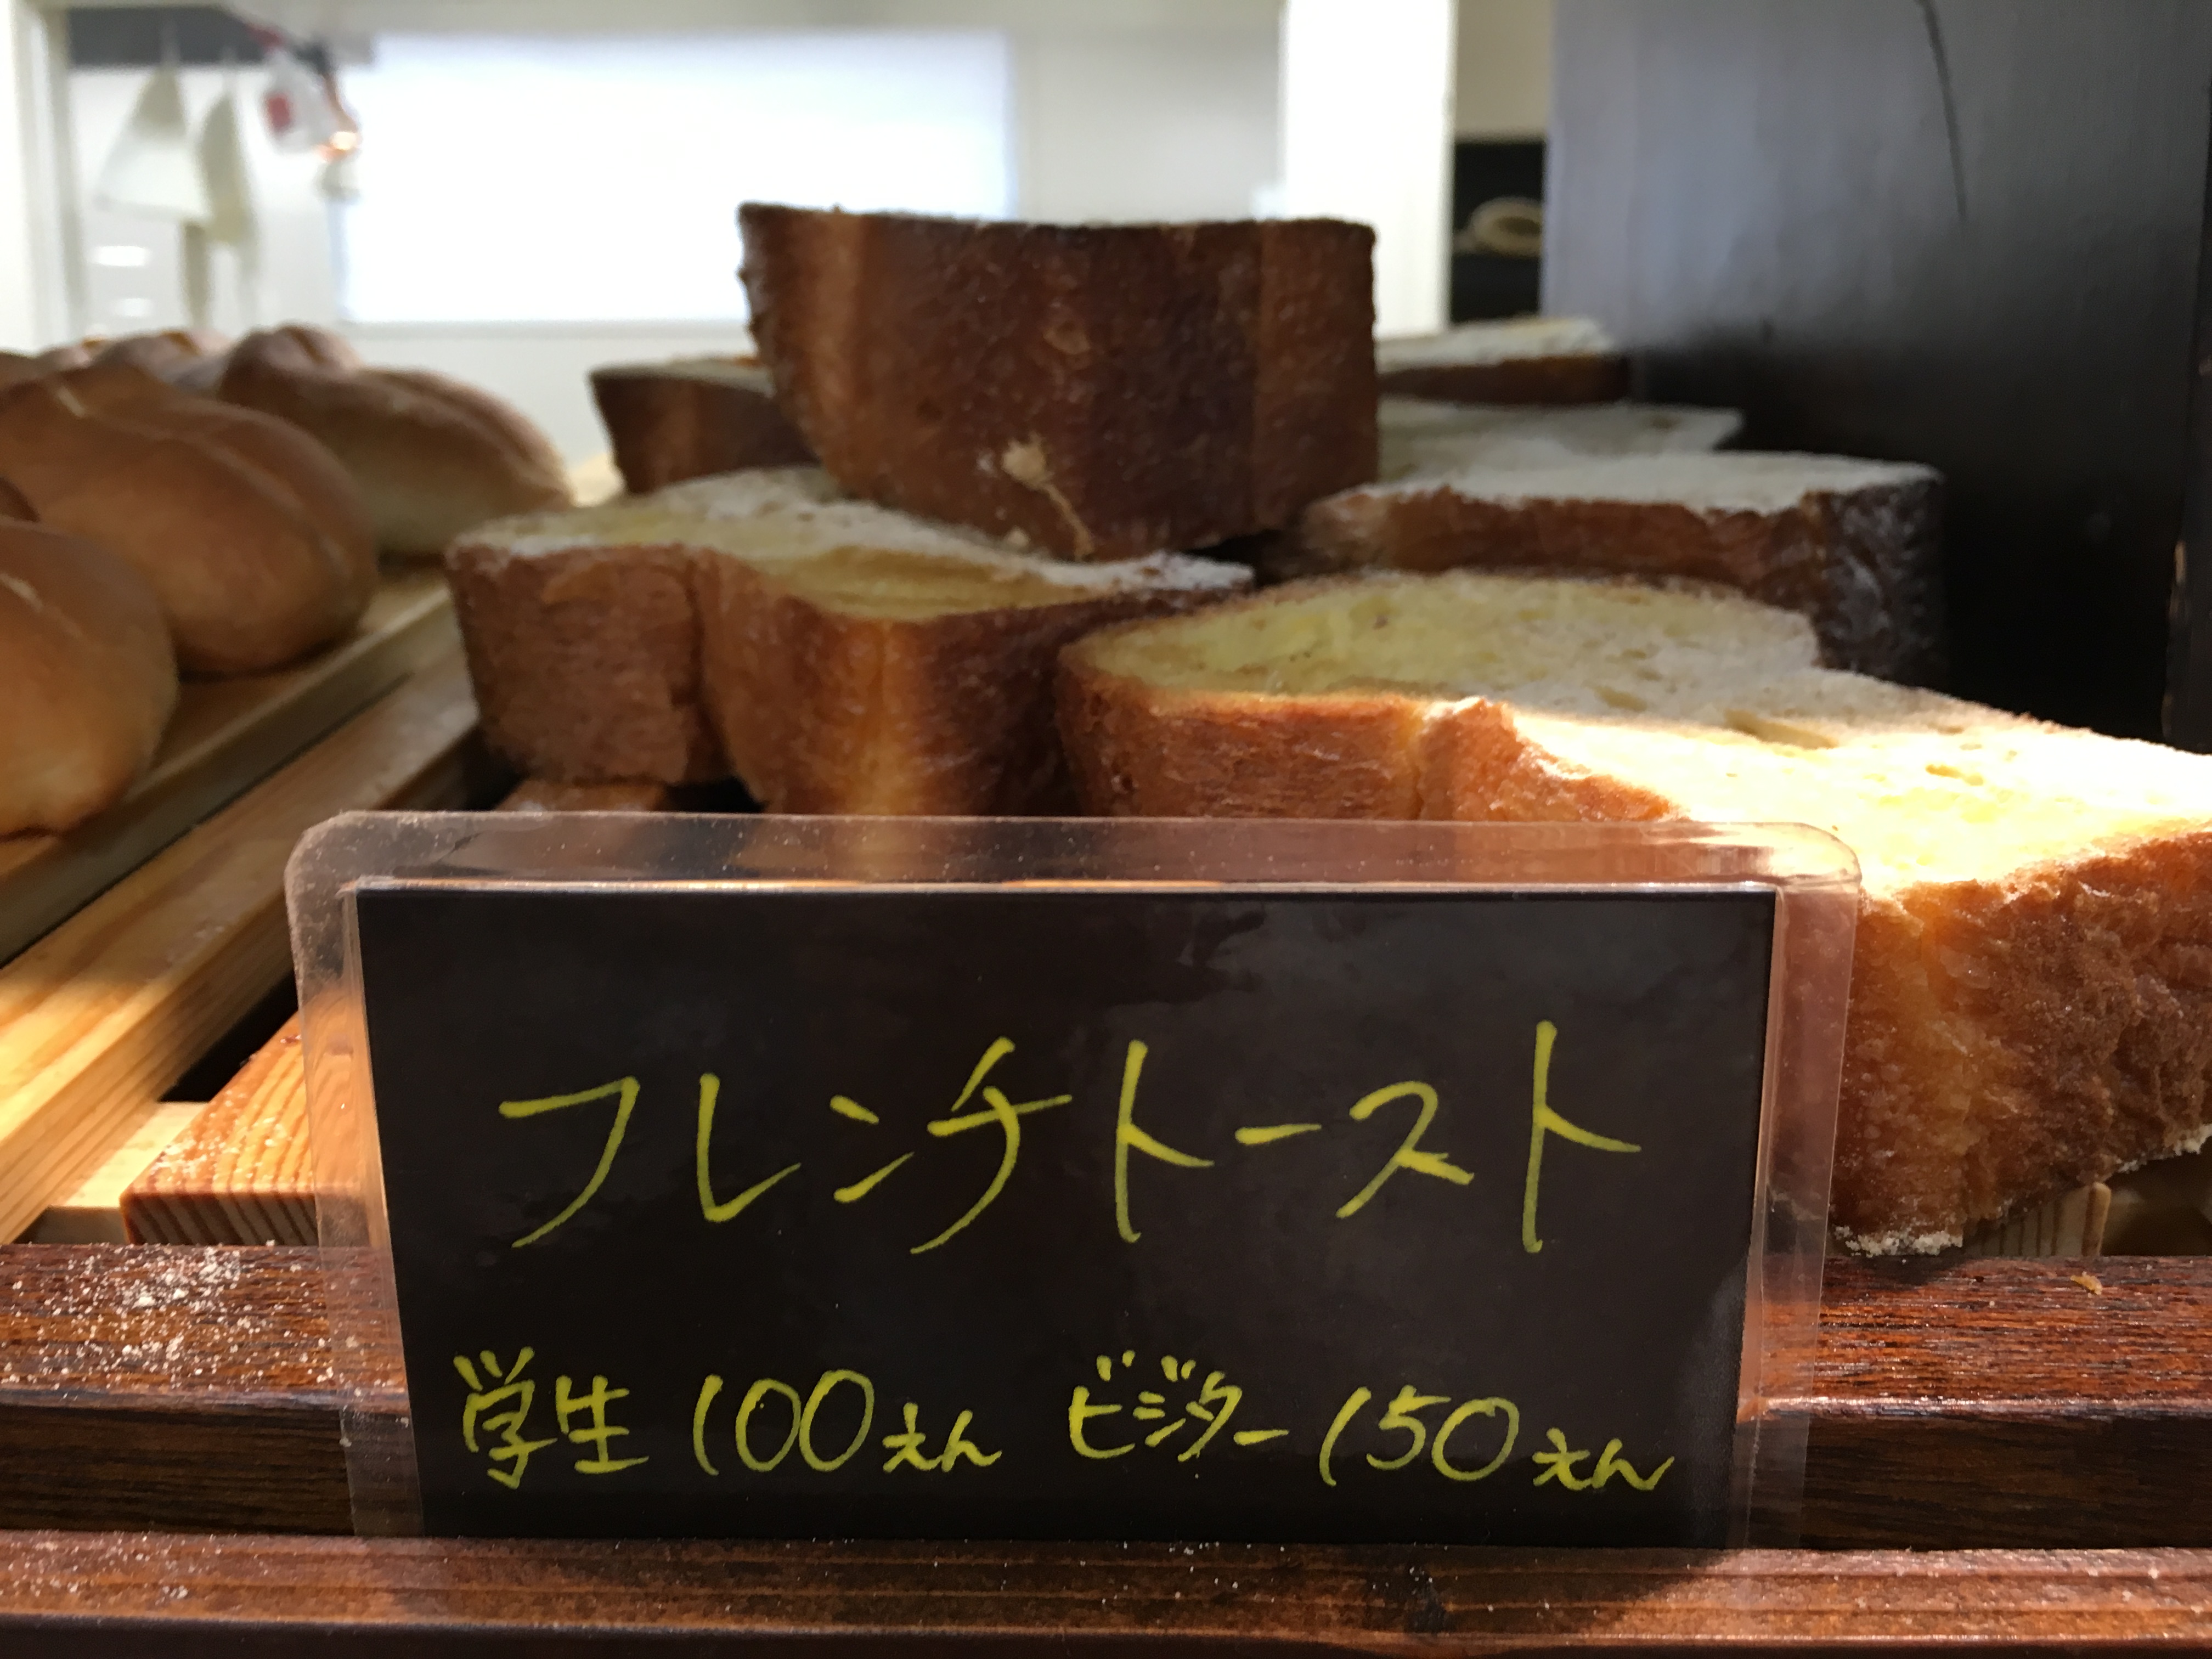 フレンチトースト
学生 100えん ビジター 150えん